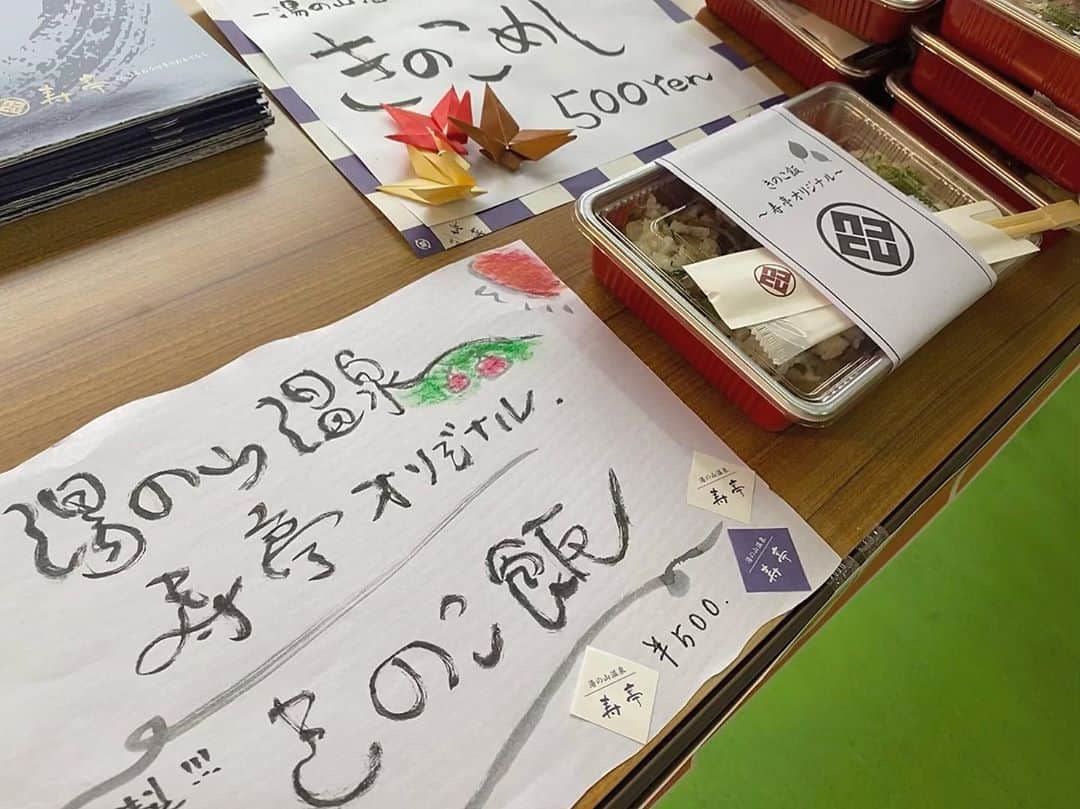 寿亭
きのこめし
500Yen
きのこ飯
～寿亭オリジナル～
湯の山温泉
寿亭オリジナル.
きのこ飯
¥500.
湯の山温泉
寿亭
湯の山温泉
寿亭
湯の山温泉
寿亭